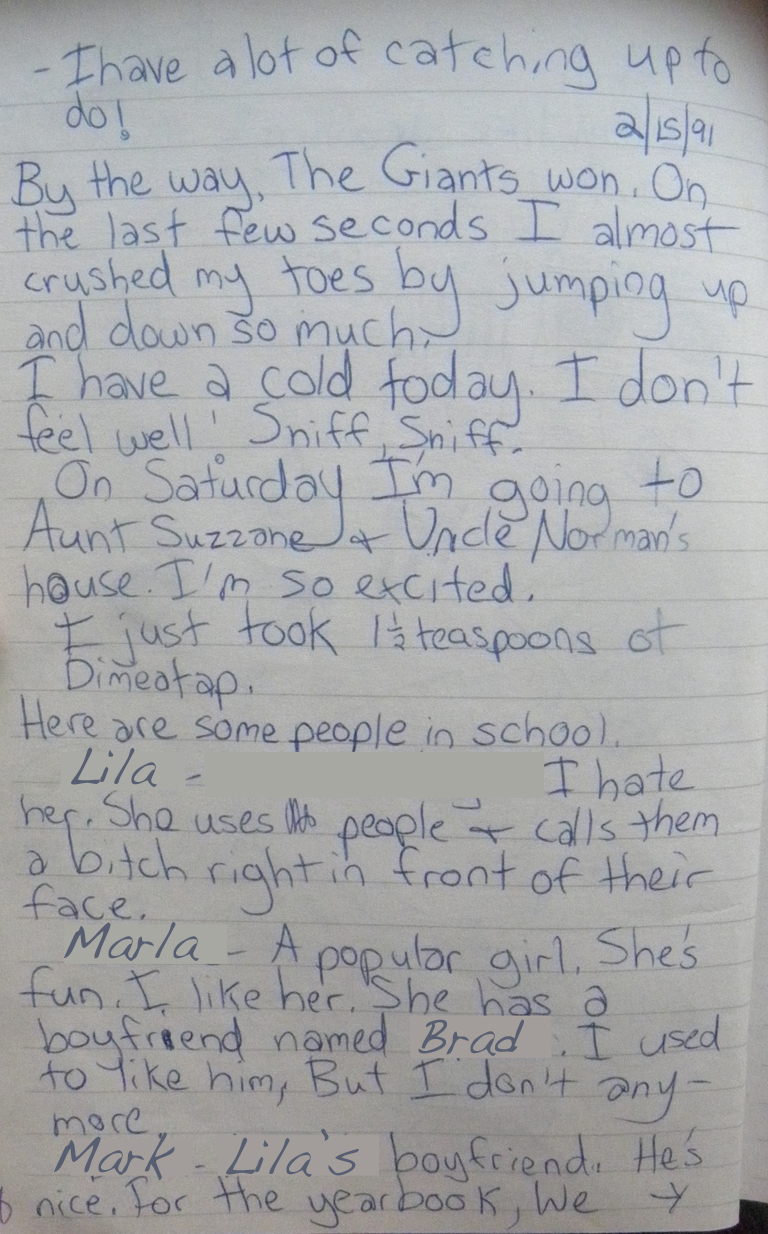 - I have a lot of catching up to
do!
2/15/91
By the way, The Giants won. On
the last few seconds I almost
crushed my toes by jumping up
and down so much.
I have a cold today. I don't
feel well! Sniff, Sniff.
On Saturday I'm going to
Aunt Suzzane + Uncle Norman's
house. I'm so excited.
I just took 1½ teaspoons of
Dimeatap.
Here are some people in school.
Lila - I hate
her. She uses people + calls them
a bitch right in front of their
face.
Marla - A popular girl. She's
fun. I like her. She has a
boyfriend named Brad. I used
to like him, But I don't any-
more.
Mark - Lila's boyfriend. He's
nice. For the yearbook, We →